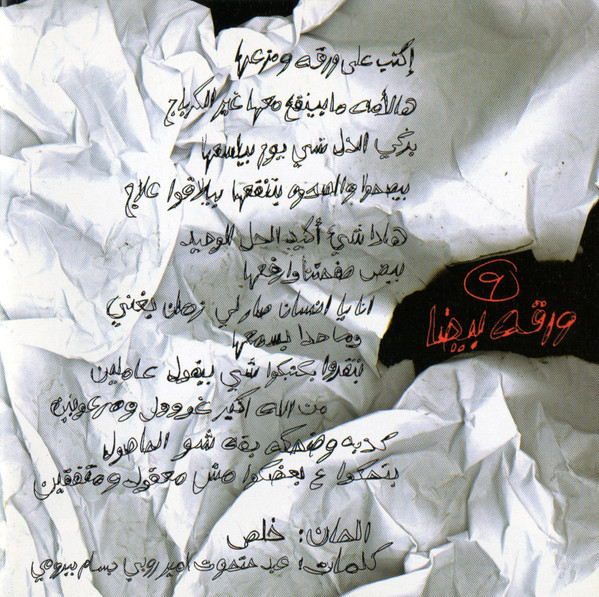 إكتب على ورقه ومزعها
هالأمه ما بينفع معها غير الكرباج
بركي الذل شي يوم بيلسعها
بيصحوا والصحوه بتنفعها بيلاقوا علاج
هادا شيئ أكيد الحل الوحيد
بيض صفحتنا وارفعها
انا يا انسان صارلي زمان بغني
وما حدا بسمعها
بتقروا بكتبكوا شي بيقول عاملين
من الله اكبر غوول ومرعوبين
كدبه وضحكه بقه شو الماهول
بتحكوا ع بعضكوا مش معقول ومتفقين
الحان: خلص
كلمات: عبد حتحوت امير روبي بسام بيرومي
٩
ورقه بيضا